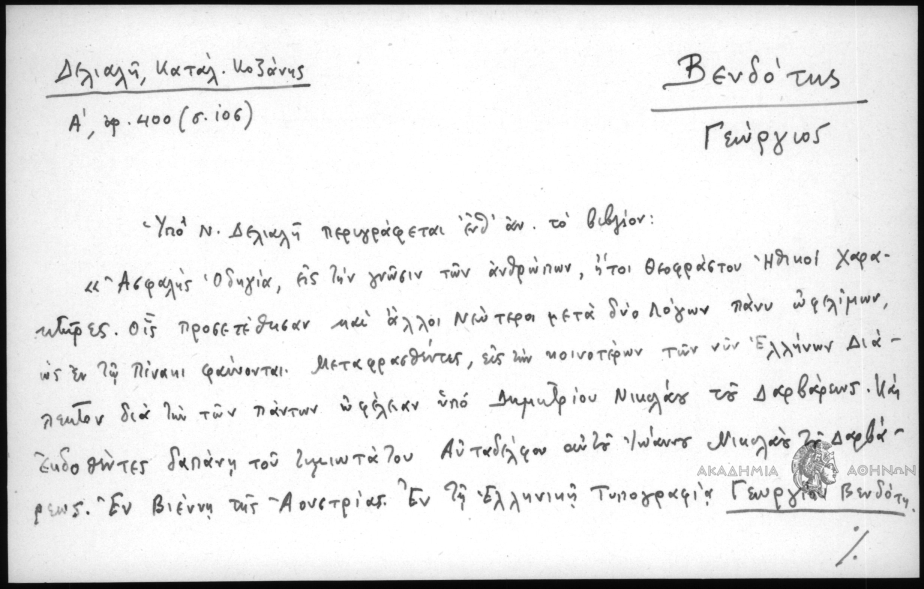 Δελιαλῆ, Καταλ. Κοζάνης
Βενδότης
Α', ἀρ. 400 (σ. 106)
Γεώργιος
Ὑπὸ Ν. Δελιαλῆ περιγράφεται ἐνθ' ἀν. τὸ βιβλίον:
«Ἀσφαλὴς Ὁδηγία, εἰς τὴν γνῶσιν τῶν ἀνθρώπων, ἤτοι Θεοφράστου Ἠθικοὶ Χαρα-
κτῆρες. Οἷς προσετέθησαν καὶ ἄλλοι Νεώτεροι μετὰ δύο Λόγων πάνυ ὠφελίμων,
ὡς ἐν τῷ Πίνακι φαίνονται. Μεταφρασθέντες, εἰς τὴν κοινοτέραν τῶν νῦν Ἑλλήνων Διά-
λεκτον διὰ τὴν τῶν πάντων ὠφέλειαν ὑπὸ Δημητρίου Νικολάου τοῦ Δαρβάρεως. Καὶ
Ἐκδοθέντες δαπάνῃ τοῦ τιμιωτάτου Αὐταδέλφου αὐτοῦ Ἰωάννου Νικολάου τοῦ Δαρβά-
ρεως. Ἐν Βιέννῃ τῆς Ἀουστρίας. Ἐν τῇ Ἑλληνικῇ Τυπογραφίᾳ Γεωργίου Βενδότη.
ΑΚΑΔΗΜΙΑ ΑΘΗΝΩΝ
./.